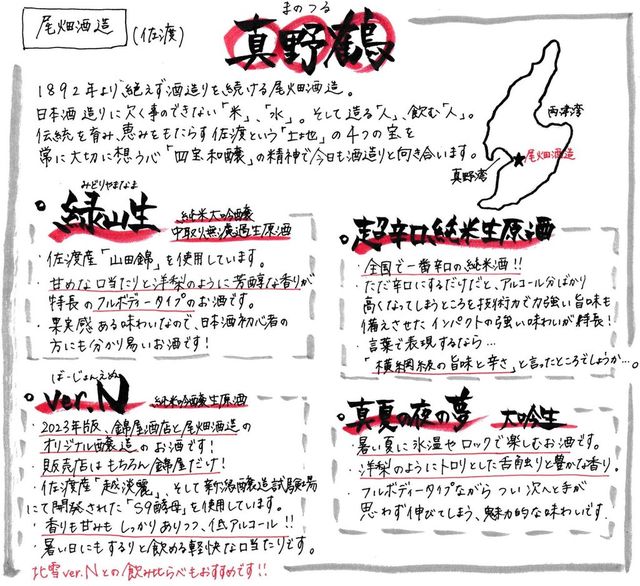 尾畑酒造
(佐渡)
まのつる
真野鶴
1892年より、絶えず酒造りを続ける尾畑酒造。
日本酒造りに欠く事のできない「米」、「水」。そして造る「人」、飲む「人」。
伝統を育み、恵みをもたらす佐渡という「土地」の4つの宝を
常に大切に想う心「四宝和醸」の精神で今日も酒造りと向き合います。
両津湾
尾畑酒造
真野湾
みどりやまなま
緑山生
純米大吟醸
中取り無濾過生原酒
・佐渡産「山田錦」を使用しています。
・甘めな口当たりと洋梨のように芳醇な香りが
特長のフルボディータイプのお酒です。
・果実感ある味わいなので、日本酒初心者の
方にも分かり易いお酒です!
超辛口純米生原酒
・全国で一番辛口の純米酒!!
・ただ辛口にするだけだと、アルコール分ばかり
高くなってしまうところを技術力で力強い旨味も
備えさせたインパクトの強い味わいが特長!
・言葉で表現するなら…
「横綱級の旨味と辛さ」と言ったところでしょうか…。
ばーじょんえぬ
ver.N
純米吟醸生原酒
・2023年版、錦屋酒店と尾畑酒造の
オリジナル醸造のお酒です!
・販売店はもちろん錦屋だけ!
・佐渡産「越淡麗」、そして新潟醸造試験場
にて開発された「S9酵母」を使用しています。
・香りも甘みもしっかりありつつ、低アルコール!!
・暑い日にもするりと飲める軽快な口当たりです。
北雪ver.Nとの飲み比べもおすすめです!!
真夏の夜の夢
大吟生
・暑い夏に氷温やロックで楽しむお酒です。
・洋梨のようにトロリとした舌触りと豊かな香り。
・フルボディータイプながらつい次へと手が
思わず伸びてしまう、魅力的な味わいです.